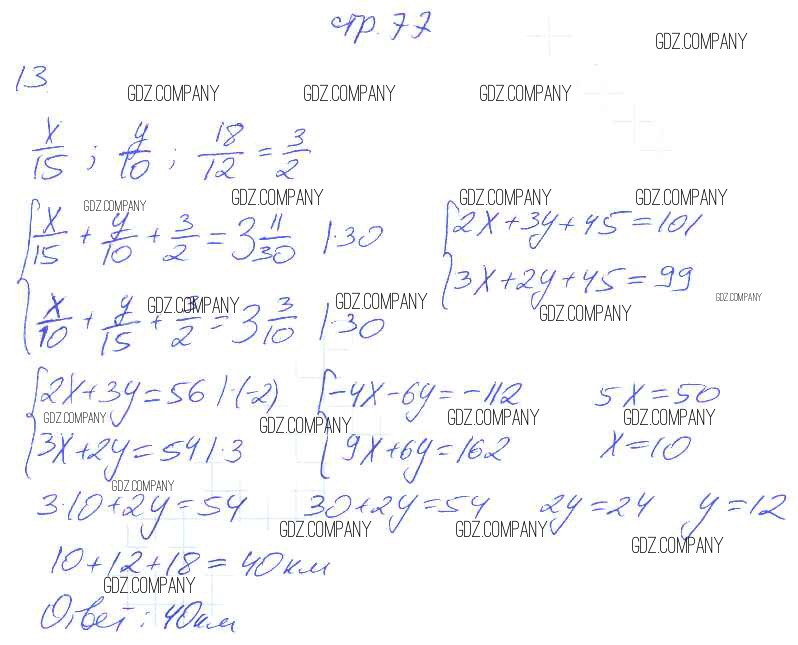 стр. 77
GDZ.COMPANY
13
GDZ.COMPANY GDZ.COMPANY GDZ.COMPANY
x/15 ; y/10 ; 18/12 = 3/2
GDZ.COMPANY GDZ.COMPANY GDZ.COMPANY GDZ.COMPANY
{ x/15 + y/10 + 3/2 = 3 11/30 |·30 { 2x+3y+45=101
x/10 + y/15 + 3/2 = 3 3/10 |·30 3x+2y+45=99
GDZ.COMPANY GDZ.COMPANY GDZ.COMPANY GDZ.COMPANY
{ 2x+3y=56 |·(-2) { -4x-6y=-112 5x=50
GDZ.COMPANY GDZ.COMPANY GDZ.COMPANY GDZ.COMPANY
3x+2y=54 |·3 9x+6y=162 x=10
GDZ.COMPANY
3·10+2y=54 30+2y=54 2y=24 y=12
GDZ.COMPANY GDZ.COMPANY GDZ.COMPANY
10+12+18=40км
GDZ.COMPANY
Ответ: 40км